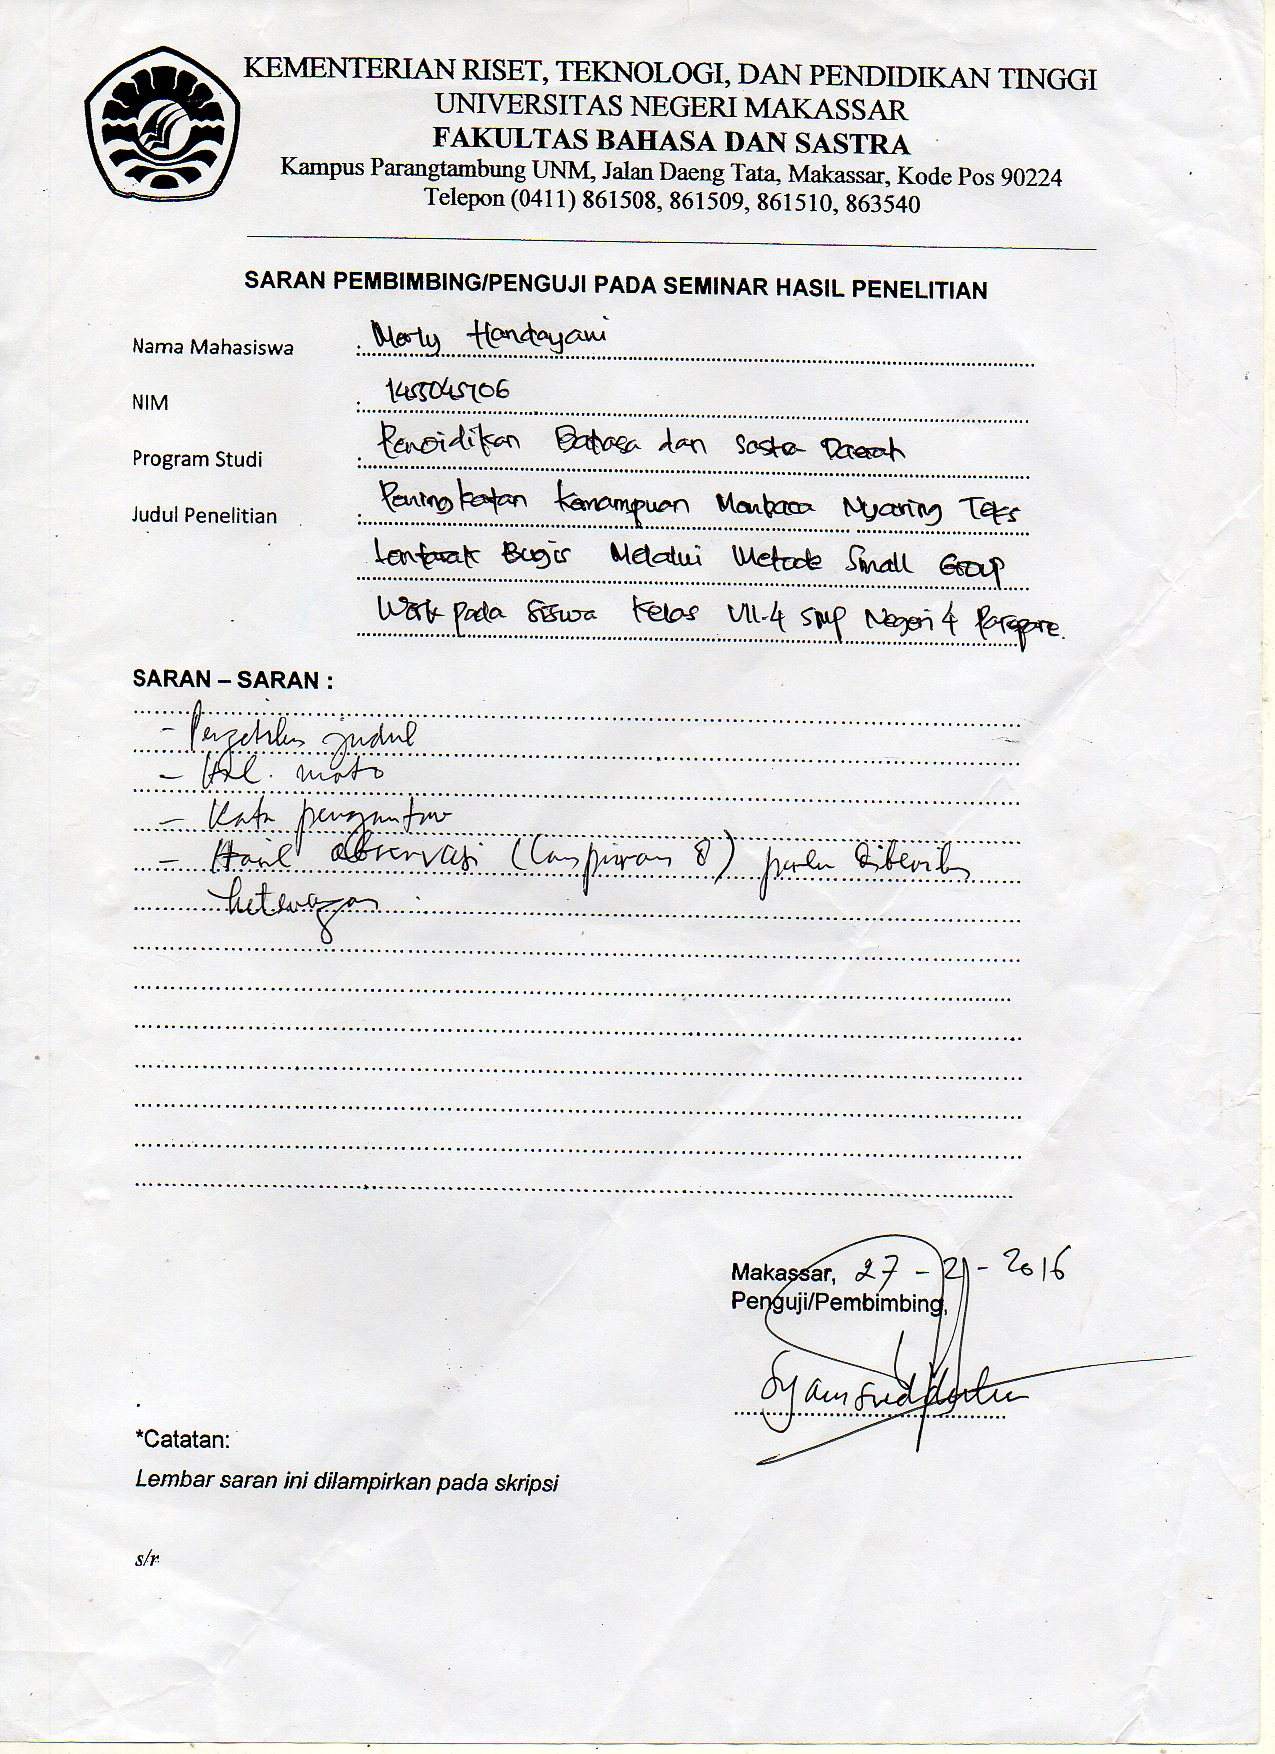 KEMENTERIAN RISET, TEKNOLOGI, DAN PENDIDIKAN TINGGI
UNIVERSITAS NEGERI MAKASSAR
FAKULTAS BAHASA DAN SASTRA
Kampus Parangtambung UNM, Jalan Daeng Tata, Makassar, Kode Pos 90224
Telepon (0411) 861508, 861509, 861510, 863540
SARAN PEMBIMBING/PENGUJI PADA SEMINAR HASIL PENELITIAN
Nama Mahasiswa : Handayani
NIM :
Program Studi : Pendidikan Bahasa dan Sastra Daerah
Judul Penelitian : Peningkatan Kemampuan Membaca Nyaring Teks
Lontarak Bugis Melalui Metode Small Group
Work pada Siswa Kelas VII.4 SMP Negeri 4 Parepare.
SARAN – SARAN :
- judul
- Hal. moto
- Kata pengantar
- Hasil observasi (Lampiran 8) perlu diberikan
keterangan
Makassar, 27 - 2016
Penguji/Pembimbing,
*Catatan:
Lembar saran ini dilampirkan pada skripsi
s/r